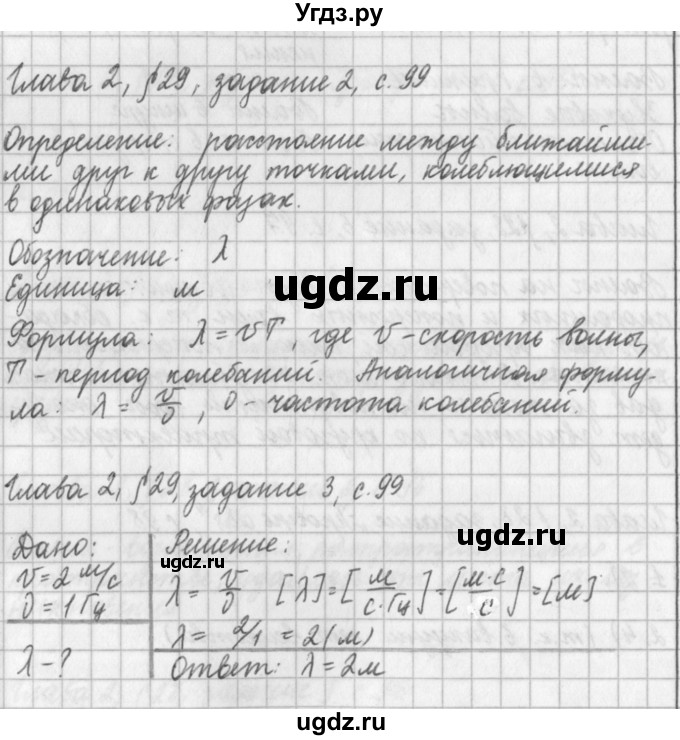 Угдз.ру
Глава 2, §29, задание 2, с. 99
Определение: расстояние между ближайши-
ми друг к другу точками, колеблющемися
в одинаковых фазах.
Обозначение: λ
Единица: м
Формула: λ = vT, где v - скорость волны,
T - период колебаний. Аналогичная форму-
ла: λ = v/υ, υ - частота колебаний.
Глава 2, §29, задание 3, с. 99
Дано:
v = 2 м/с
υ = 1 Гц
λ - ?
Решение:
λ = v/υ [λ] = [м/с·Гц] = [м·с/с] = [м]
λ = 2/1 = 2 (м)
Ответ: λ = 2м
ugdz.ru
ugdz.ru
ugdz.ru
ugdz.ru